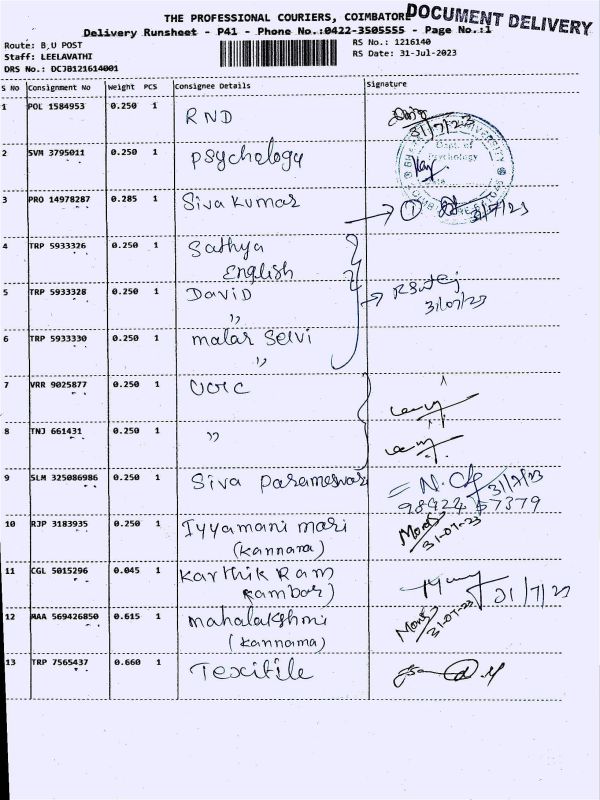 THE PROFESSIONAL COURIERS, COIMBATORE
DOCUMENT DELIVERY
Delivery Runsheet - P41 - Phone No.:0422-3505555 - Page No.:1
Route: B,U POST
RS No.: 1216140
Staff: LEELAVATHI
RS Date: 31-Jul-2023
DRS No.: DCJB121614001
S NO Consignment No Weight PCS Consignee Details Signature
1 POL 1584953 0.250 1 RND
31/7/23
2 SVM 3795011 0.250 1 Psychology
Dept. of
Psychology
3 PRO 14978287 0.285 1 Siva Kumar
1 31/7/23
4 TRP 5933326 0.250 1 Sathya
English
5 TRP 5933328 0.250 1 David
"
31/07/23
6 TRP 5933330 0.250 1 malar Selvi
"
7 VRR 9025877 0.250 1
8 TNJ 661431 0.250 1 "
9 SLM 325086986 0.250 1 Siva Parameswar
31/7/23
98422 57379
10 RJP 3183935 0.250 1 Iyyamani mari
(Kannama)
31-07-23
11 CGL 5015296 0.045 1 Karthik Ram
31/7/23
12 MAA 569426850 0.615 1 mahalakshmi
(kannama)
31-07-23
13 TRP 7565437 0.660 1 Texitile